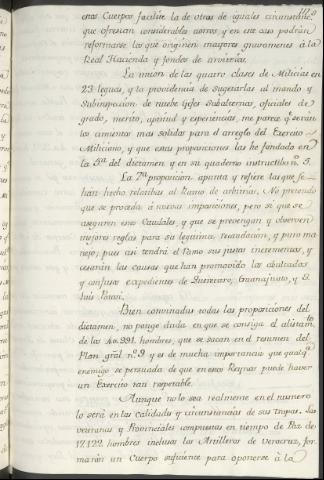 estos Cuerpos facilite la de otros de iguales circunstª.
que ofrescan considerables ahorros, y en este caso podrán
reformarse los que originen mayores gravamenes à la
Real Hacienda y fondos de arvitrios.
La union de las quatro clases de Milicias en
23 leguas, y la providencia de sugetarlas al mando y
Subinspeccion de nuebe Gefes Subalternos, oficiales de
grado, merito, aptitud y experiencias, me parece qe. serán
los cimientos mas solidos para el arreglo del Exercito
Miliciano, y que estas proposiciones las he fondado en
la 5ª. del dictamen y en su quaderno instructibo nº. 5.
La 7ª. proposicion apunta y refiere las que se
han hecho relatibas al Ramo de arbitrios. No pretendo
que se proceda á nuevas imposiciones, pero si que se
aseguren esos Caudales, y que se prevengan y observen
mejores reglas para su legitima recaudacion, y puro ma-
nejo, pues asi tendrá el Ramo sus justos incrementos, y
cesarán las causas que han promovido los abultados
y confusos expedientes de Queretaro, Guanajuato, y S.
Luis Potosi.
Bien convinadas todas las proposiciones del
dictamen, no pongo duda en que se consiga el alistamto.
de los 40.991. hombres, que se sacan en el resumen del
Plan gral nº. 9 y es de mucha importancia que qualqª.
enemigo se persuada de que en esos Reynos puede haver
un Exercito tan respetable.
Aunque no lo sea realmente en el numero
lo será en las calidads. y circunstancias de sus tropas. Las
veteranas y Provinciales compuestas en tiempo de Paz de
17.122. hombres inclusos los Artilleros de Veracruz, for-
marán un Cuerpo suficiente para oponerse à la